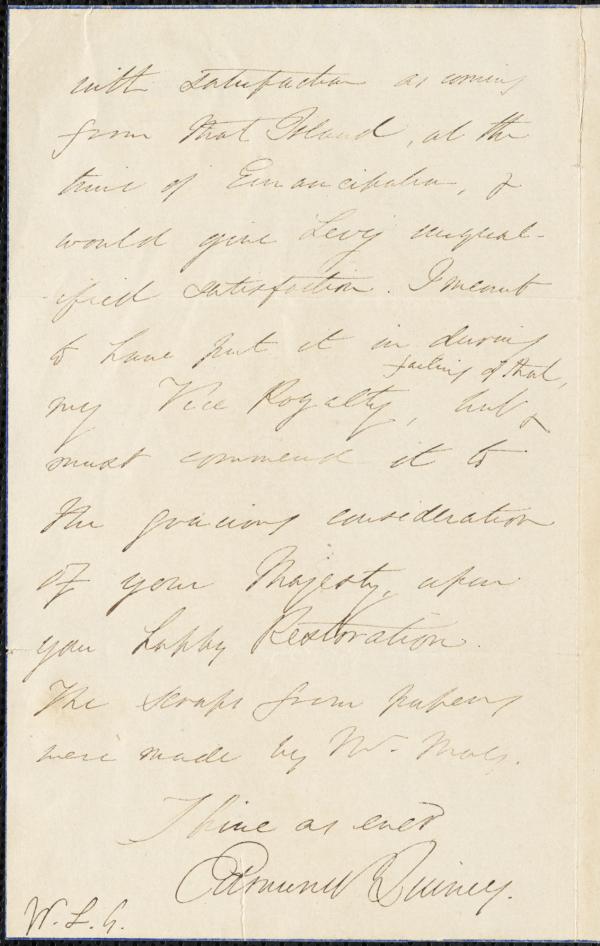 with satisfaction as coming
from that Island, at the
time of Emancipation, &
would give Levy unqual-
ified satisfaction. I meant
to have put it in during
failing of that,
my Vice Royalty, but
must commend it to
the gracious consideration
of your Majesty, upon
your happy Restoration.
The scraps from papers
were made by Mr. May.
Thine as ever
Edmund Quincy.
W. L. G.